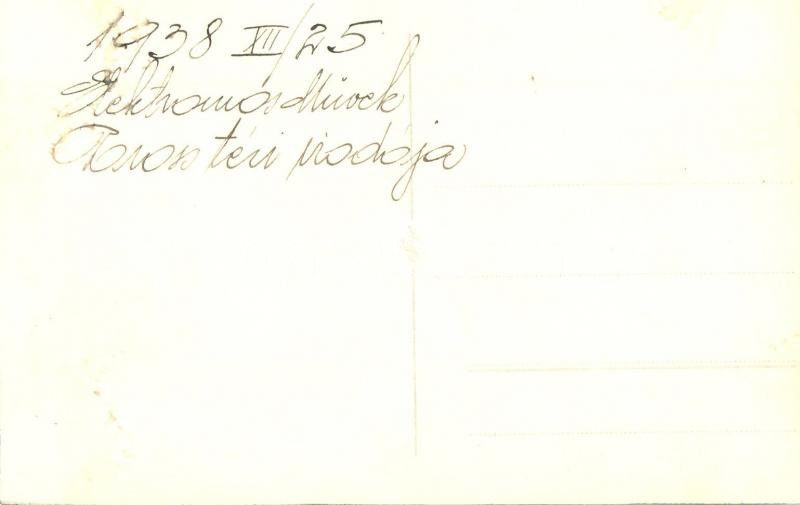 1938 XII/25
Elektromos Művek
téri irodája